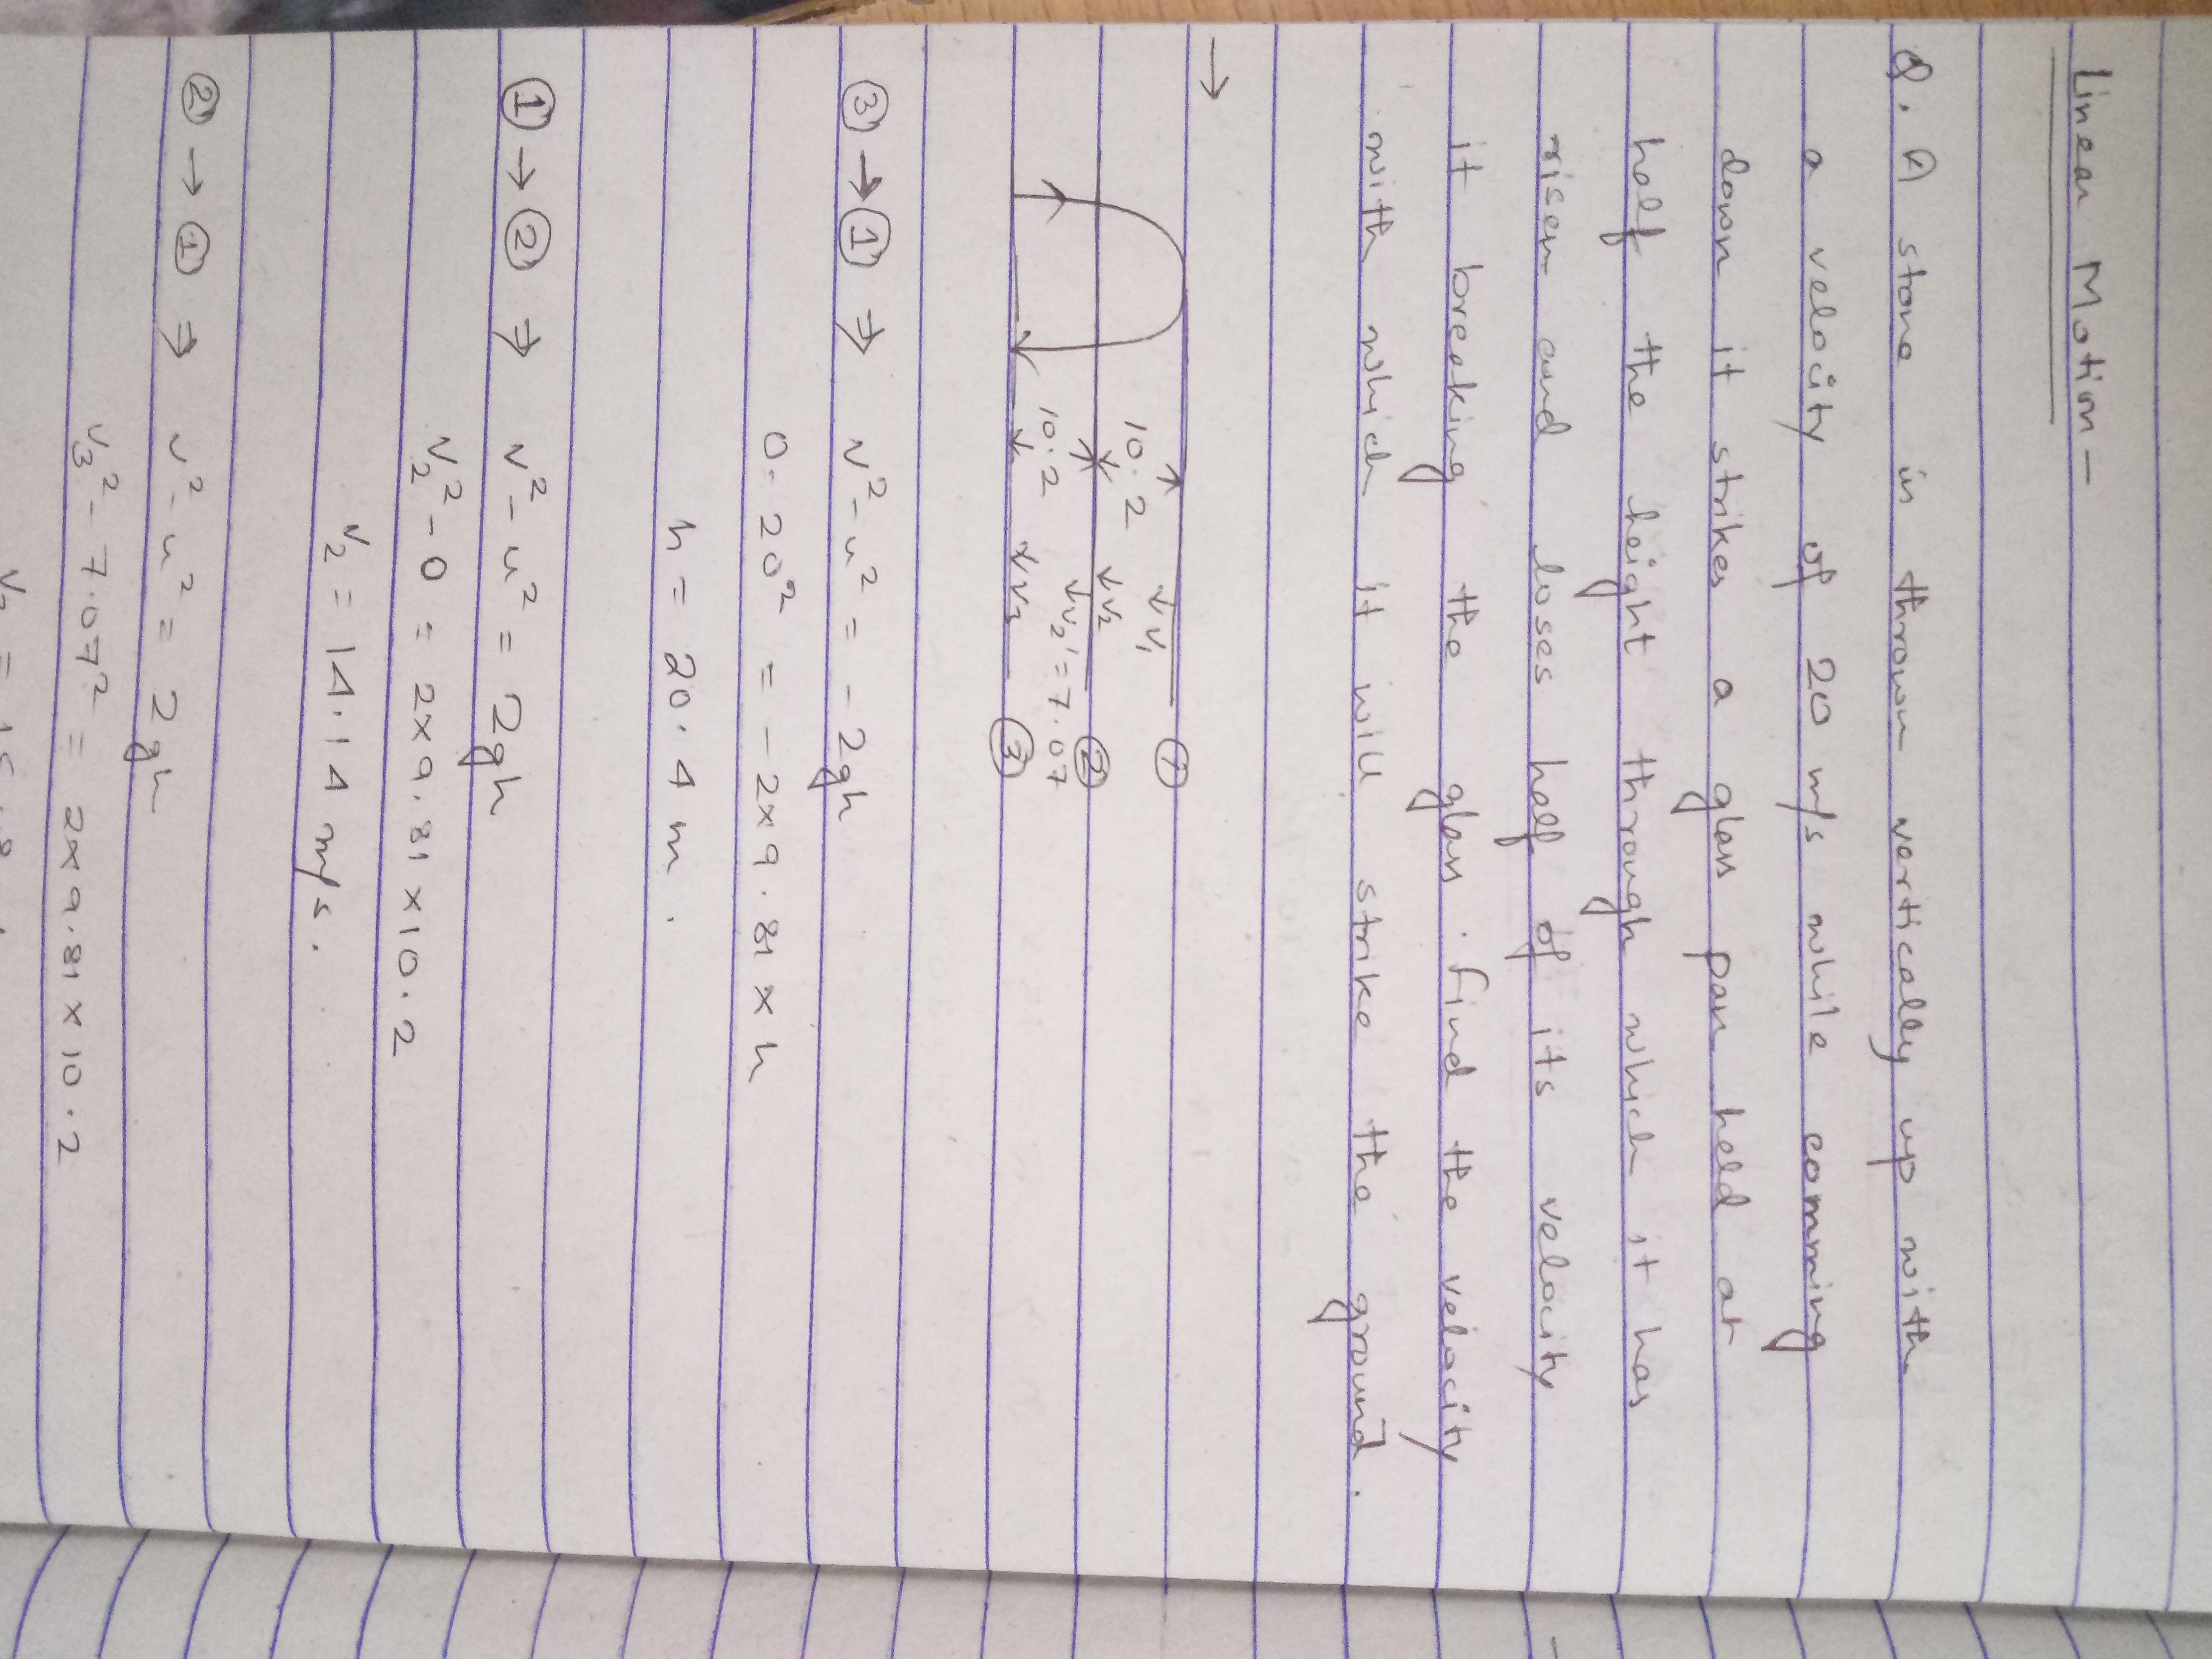 Linear Motion -
Q. A stone is thrown vertically up with
a velocity of 20 m/s while comming
down it strikes a glass pan held at
half the height through which it has
risen and loses half of its velocity
it breeking the glass. find the velocity
with which it will strike the ground.
→
①
↓ v₁
10.2
↓ v₂ ②
↓ v₂' = 7.07
10.2
↓ v₃ ③
③ → ① ⇒ v² - u² = - 2gh
0 - 20² = - 2 × 9.81 × h
h = 20.4 m.
① → ② ⇒ v² - u² = 2gh
v₂² - 0 = 2 × 9.81 × 10.2
v₂ = 14.14 m/s.
② → ① ⇒ v² - u² = 2gh
v₃² - 7.07² = 2 × 9.81 × 10.2